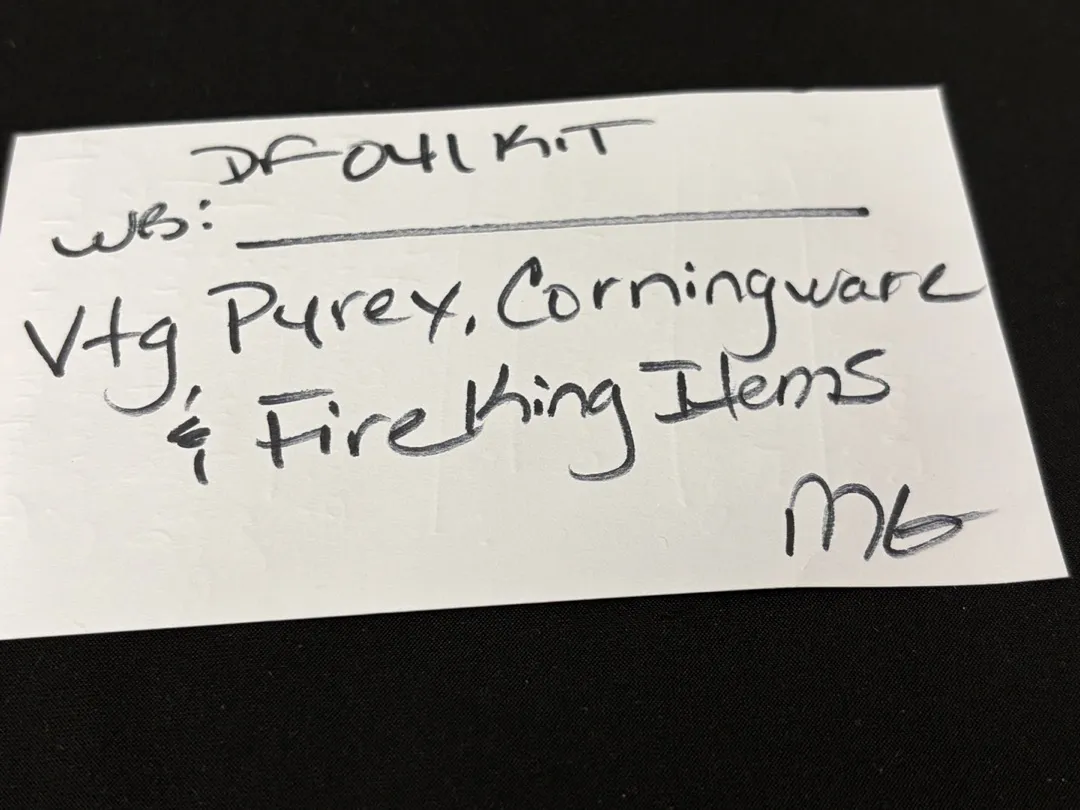 DF041KIT
WB:
Vtg Pyrex, Corningware
& Fire King Items
MG